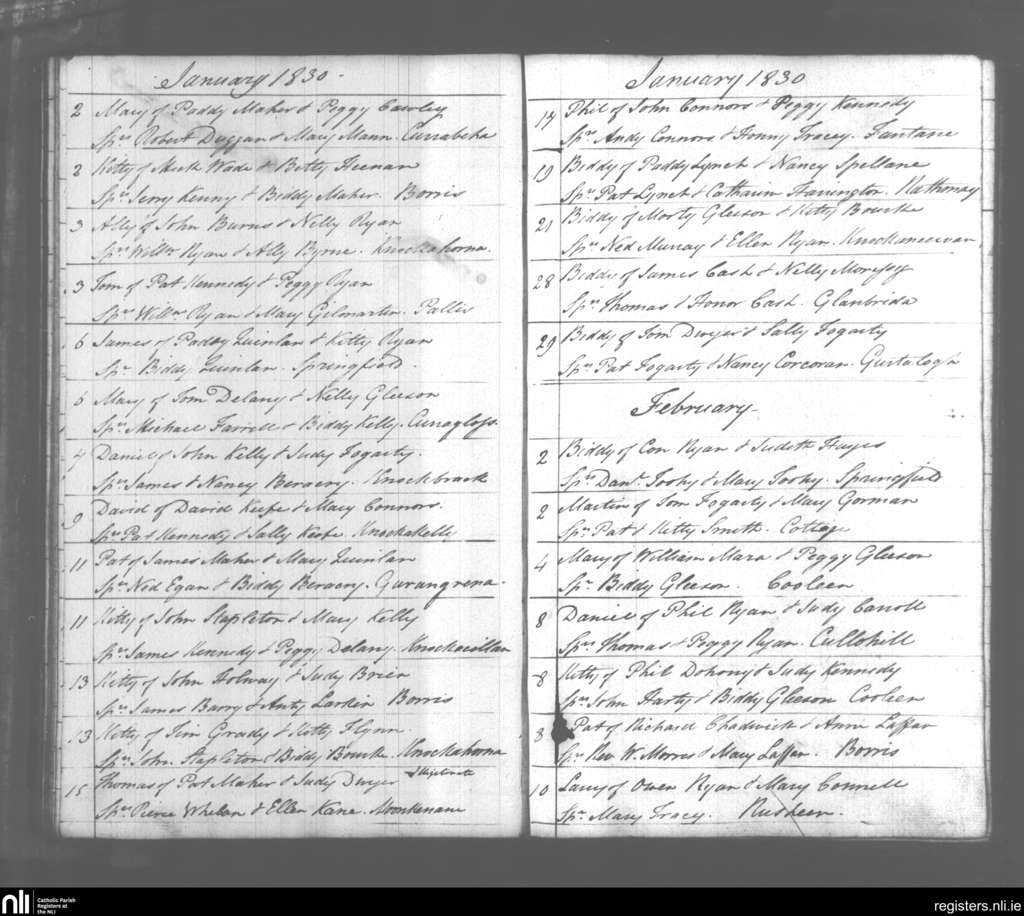 January 1830
2 Mary of Paddy Maher & Peggy Cawley
Sprs Robert Duggan & Mary Mann. Currabeha
2 Kitty of Mick Wade & Betty Heenan
Sprs Jerry Kenny & Biddy Maher. Borris
3 Ally of John Burns & Nelly Ryan
Sprs Willm Ryan & Ally Byrne. Knockahorna.
3 Tom of Pat Kennedy & Peggy Ryan
Sprs Willm Ryan & Mary Gilmartin. Pallis
6 James of Paddy Quinlan & Kitty Ryan
Spr Biddy Quinlan. Springfield.
6 Mary of Tom Delany & Nelly Gleeson
Sprs Michael Farrell & Biddy Kelly.
7 Daniel of John Kelly & Judy Fogarty.
Sprs James & Nancy Beraery. Knockbrack
9 David of David Keefe & Mary Connors.
Sprs Pat Kennedy & Sally Keefe. Knockakelly
11 Pat of James Maher & Mary Quinlan
Sprs Ned Egan & Biddy Beraery. Gurangrena.
11 Kitty of John Stapleton & Mary Kelly
Sprs James Kennedy & Peggy Delany.
13 Kitty of John Holway & Judy Brien
Sprs James Barry & Anty Larkin Borris
13 Kitty of Jim Grady & Kitty Flynn.
Sprs John Stapleton & Biddy Bourke. Knockahorna
15 Thomas of Pat Maher & Judy Dwyer Illegitimate
Sprs Pierce Whelan & Ellen Kane. Monkenane
January 1830
17 Phil of John Connors & Peggy Kennedy
Sprs Andy Connors & Honny Tracey. Fantane
19 Biddy of Paddy Lynch & Nancy Spellane
Sprs Pat Lynch & Catharin Harrington. Rathmoy
21 Biddy of Morty Gleeson & Kitty Bourke
Sprs Ned Murray & Ellen Ryan.
28 Biddy of James Cash & Nelly Moressy
Sprs Thomas & Honor Cash. Glanbrida
29 Biddy of Tom Dwyer & Sally Fogarty
Sprs Pat Fogarty & Nancy Corcoran. Gurtalogh
February
2 Biddy of Con Ryan & Judith Hayes
Sprs Danl Toohy & Mary Toohy. Springfield
2 Martin of Tom Fogarty & Mary Gorman
Sprs Pat & Kitty Smith. Cottage
4 Mary of William Mara & Peggy Gleeson
Spr Biddy Gleeson. Cooleen
8 Daniel of Phil Ryan & Judy Carroll
Sprs Thomas & Peggy Ryan. Cullohill
8 Kitty of Phil Dohony & Judy Kennedy
Sprs John Harty & Biddy Gleeson Cooleen
8 Pat of Richard Chadwick & Anne Laffan
Sprs Rev W. Morris & Mary Laffan. Borris
10 Larry of Owen Ryan & Mary Connell
Spr Mary Tracy. Rusheen.
nli Catholic Parish
Registers at
the NLI
registers.nli.ie